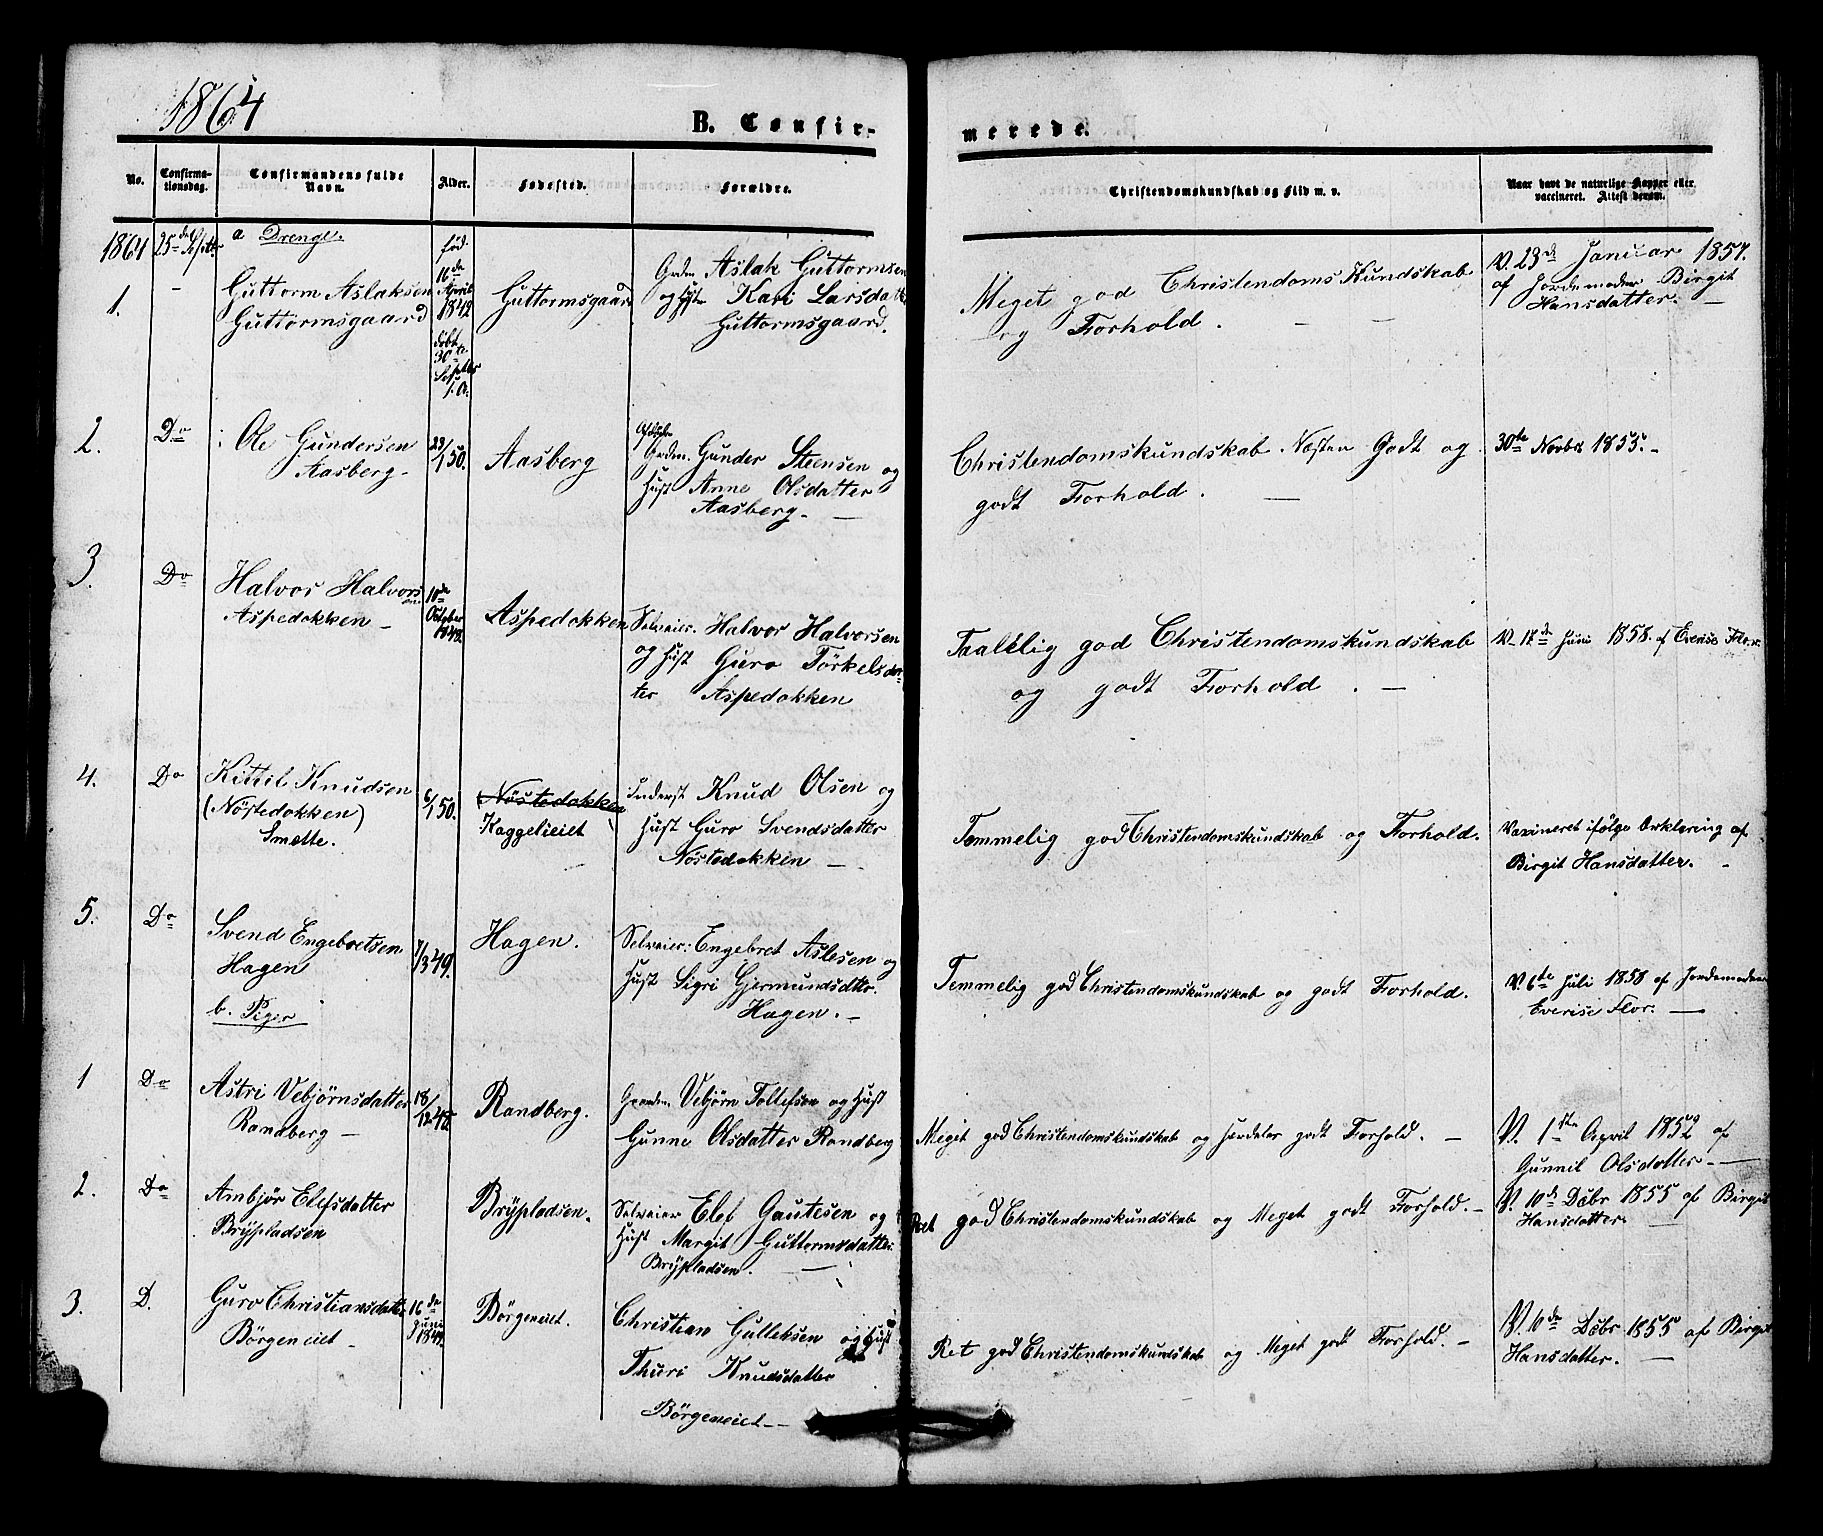 1864
B. Confir-
merede.
No.
Confirma-
tionsdag.
Confirmandens fulde
Navn.
Alder.
Fødested.
Forældre.
Christendomskundskab og Flid m. v.
Naar havt de naturlige Kopper eller
vaccineret. Attest derom.
1864 25de Septbr a Drenge.
1. – Guttorm Aslaksen
Guttormsgaard
fød.
16de
April
1849
døbt
30te
Septbr
s. A.
Guttormsgaard
Grdm. Aslak Guttormsen
og Hust. Kari Larsdatter
Guttormsgaard.
Meget god Christendoms Kundskab
og Forhold. – –
V. 23de Januar 1857.
af Jordemoder Birgit
Hansdatter. –
2. Do Ole Gundersen
Aasberg –
23/1 50.
Aasberg
Grdm. Gunder Steensen og
Hust Anne Olsdatter
Aasberg. –
Christendomskundskab Næsten Godt og
godt Forhold. –
30te Novbr 1855. –
3. Do Halvor Halvors
en
Aspedokken –
October
1849.
Aspedokken
Selveier. Halvor Halvorsen
og Hust Guro Torkelsdat-
ter Aspedokken
Taalelig god Christendomskundskab
og godt Forhold. –
V. 18de Juni 1858 af Everise Flor.
4. Do Kittil Knudsen
(Nöstedokken)
Smette.
6/1 50.
(Nöstedokken
Kaggelieiet
Inderst Knud Olsen og
Hust Guro Svendsdatter
Nöstedokken –
Temmelig god Christendomskundskab og Forhold.
Vaxineret ifölge Erklæring af
Birgit Hansdatter. –
5. Do Svend Engebretsen
Hagen
7/3 49.
Hagen.
Selveier: Engebret Aslesen og
Hust Sigri Gjermundsdttr.
Hagen. –
Temmelig god Christendomskundskab og godt Forhold.
V. 6te Juli 1858 af Jordemoder
Everise Flor. –
b. Piger
1 Do Astri Vebjörnsdatter
Randberg –
18/12 48.
Randberg.
Grdm. Vebjörn Tollefsen og Hust
Gunne Olsdatter Randberg
Meget god Christendomskundskab og godt Forhold. –
V. 1ste April 1852 af
Gunnil Olsdatter. –
2. Do Ambjør Elefsdatter
Brÿpladsen
Brÿpladsen.
Selveier Elef Gautesen og
Hust Margit Guttormsdatter
Brÿpladsen. –
Ret god Christendomskundskab og Meget godt Forhold. –
V. 10de Debr 1855 af Birgit
Hansdatter. –
3. D. Guro Christiansdatter
Börgeneiet –
16de
Juni
1849.
Börgeneiet.
Christian Gulleksen og Hust
Thuri Knudsdatter
Börgeneiet –
Ret god Christendomskundskab og Meget godt Forhold. –
V. 6de Debr 1855 af Birgit
Hansdatter. –